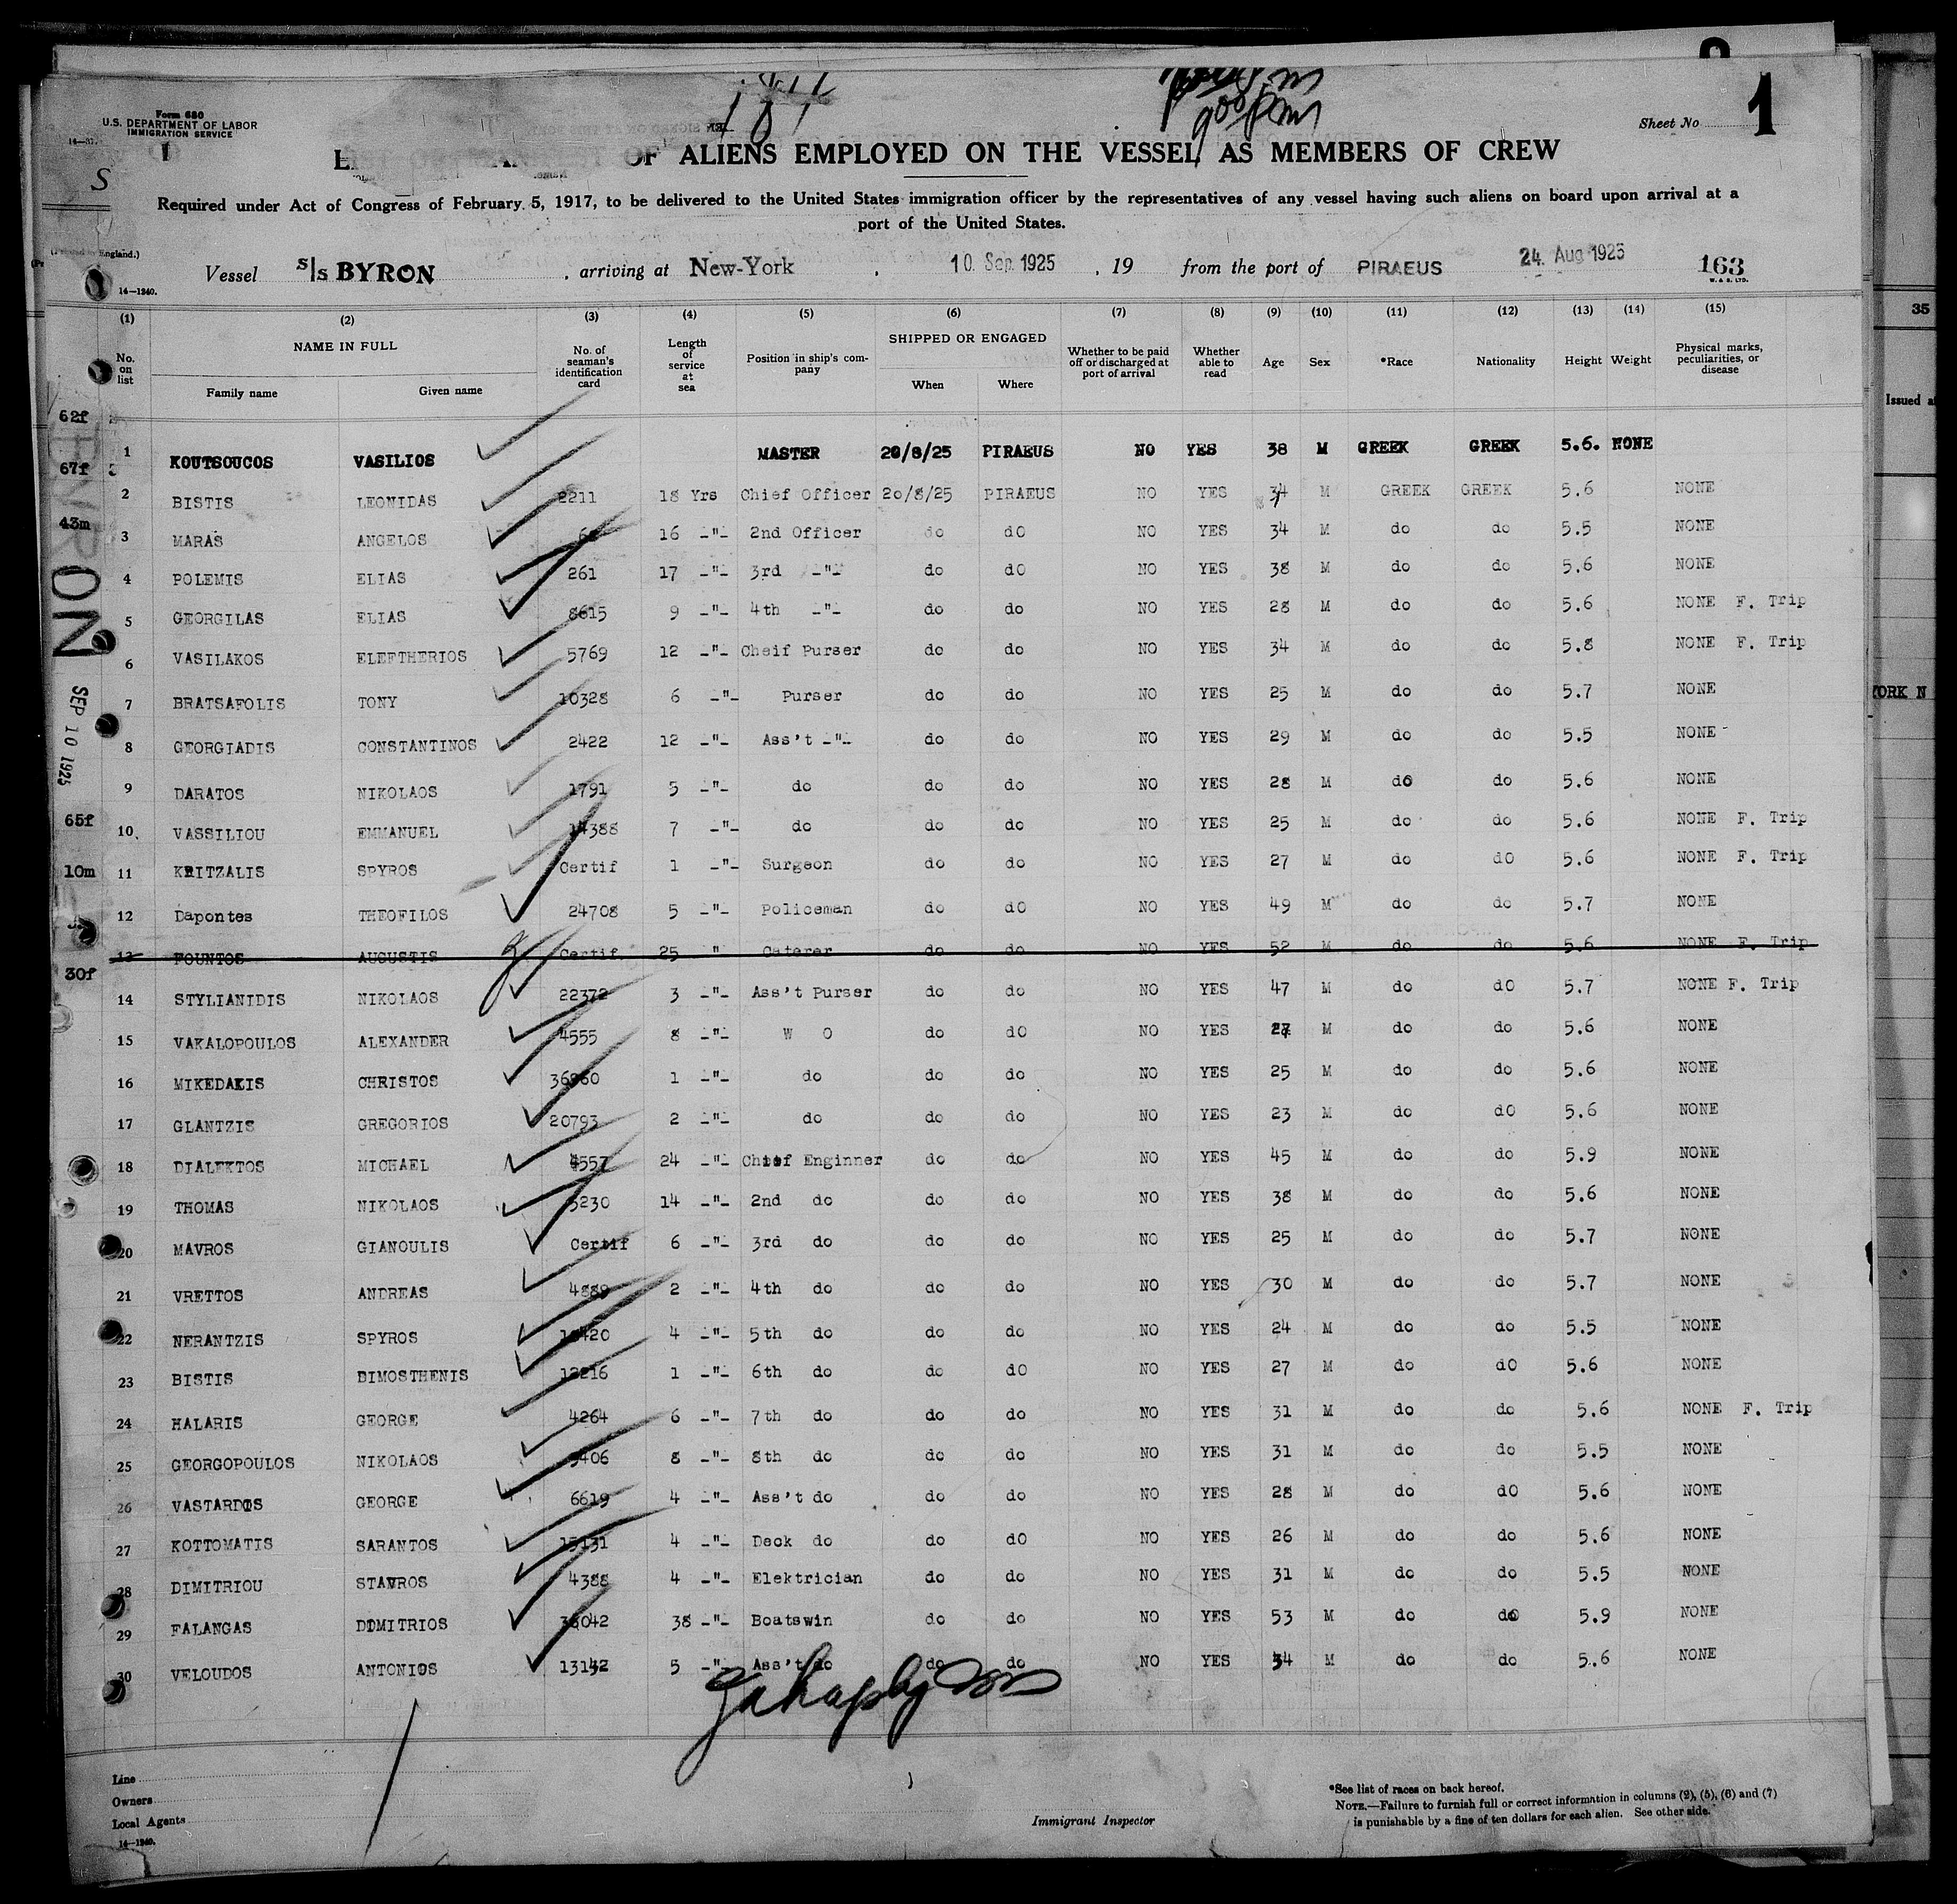 1
Form 680
U.S. DEPARTMENT OF LABOR
IMMIGRATION SERVICE
Sheet No
OF ALIENS EMPLOYED ON THE VESSEL AS MEMBERS OF CREW
Required under Act of Congress of February 5, 1917, to be delivered to the United States immigration officer by the representatives of any vessel having such aliens on board upon arrival at a
port of the United States.
Vessel S/S BYRON , arriving at New-York , 10 Sep. 1925 , 19 from the port of PIRAEUS 24. Aug 1925 163
14—1240.
W. & S. LTD.
(1) (2) (3) (4) (5) (6) (7) (8) (9) (10) (11) (12) (13) (14) (15)
No. on list NAME IN FULL Family name Given name No. of seaman's identification card Length of service at sea Position in ship's company SHIPPED OR ENGAGED When Where Whether to be paid off or discharged at port of arrival Whether able to read Age Sex *Race Nationality Height Weight Physical marks, peculiarities, or disease
1 KOUTSOUCOS VASILIOS MASTER 20/8/25 PIRAEUS NO YES 38 M GREEK GREEK 5.6. NONE
2 BISTIS LEONIDAS 2211 18 Yrs Chief Officer 20/8/25 PIRAEUS NO YES 34 M GREEK GREEK 5.6 NONE
3 MARAS ANGELOS 16 -"- 2nd Officer do dO NO YES 34 M do do 5.5 NONE
4 POLEMIS ELIAS 261 17 -"- 3rd -"- do dO NO YES 38 M do do 5.6 NONE
5 GEORGILAS ELIAS 8615 9 -"- 4th -"- do do NO YES 28 M do do 5.6 NONE F. Trip
6 VASILAKOS ELEFTHERIOS 5769 12 -"- Cheif Purser do do NO YES 34 M do do 5.8 NONE F. Trip
7 BRATSAFOLIS TONY 10328 6 -"- Purser do do NO YES 25 M do do 5.7 NONE
8 GEORGIADIS CONSTANTINOS 2422 12 -"- Ass't -"- do do NO YES 29 M do do 5.5 NONE
9 DARATOS NIKOLAOS 1791 5 -"- do do do NO YES 28 M do do 5.6 NONE
10 VASSILIOU EMMANUEL 14388 7 -"- do do do NO YES 25 M do do 5.6 NONE F. Trip
11 KRITZALIS SPYROS Certif 1 -"- Surgeon do do NO YES 27 M do dO 5.6 NONE F. Trip
12 Dapontes THEOFILOS 24708 5 -"- Policeman do dO NO YES 49 M do do 5.7 NONE
13 FOUNTOS AUGUSTIS Certif. 25 " Caterer do do NO YES 52 M do do 5.6 NONE F. Trip
14 STYLIANIDIS NIKOLAOS 22372 3 -"- Ass't Purser do do NO YES 47 M do dO 5.7 NONE F. Trip
15 VAKALOPOULOS ALEXANDER 4555 8 -"- W O do dO NO YES 27 M do do 5.6 NONE
16 MIKEDAKIS CHRISTOS 1 -"- do do do NO YES 25 M do do 5.6 NONE
17 GLANTZIS GREGORIOS 20793 2 -"- do do do NO YES 23 M do dO 5.6 NONE
18 DIALEKTOS MICHAEL 4557 24 -"- Chief Enginner do do NO YES 45 M do do 5.9 NONE
19 THOMAS NIKOLAOS 5230 14 -"- 2nd do do do NO YES 38 M do do 5.6 NONE
20 MAVROS GIANOULIS Certif 6 -"- 3rd do do do NO YES 25 M do do 5.7 NONE
21 VRETTOS ANDREAS 4889 2 -"- 4th do do do NO YES 30 M do do 5.7 NONE
22 NERANTZIS SPYROS 4 -"- 5th do do do NO YES 24 M do do 5.5 NONE
23 BISTIS DIMOSTHENIS 1 -"- 6th do do dO NO YES 27 M do dO 5.6 NONE
24 HALARIS GEORGE 4264 6 -"- 7th do do do NO YES 31 M do do 5.6 NONE F. Trip
25 GEORGOPOULOS NIKOLAOS 8 -"- 8th do do do NO YES 31 M do do 5.5 NONE
26 VASTARDOS GEORGE 6619 4 -"- Ass't do do do NO YES 28 M do dO 5.6 NONE
27 KOTTOMATIS SARANTOS 4 -"- Deck do do dO NO YES 26 M do do 5.6 NONE
28 DIMITRIOU STAVROS 4388 4 -"- Elektrician do do NO YES 31 M do do 5.5 NONE
29 FALANGAS DIMITRIOS 38 -"- Boatswin do do NO YES 53 M do do 5.9 NONE
30 VELOUDOS ANTONIOS 13142 5 -"- Ass't do do do NO YES 34 M do do 5.6 NONE
62f
67f
43m
SEP 10 1925
65f
10m
30f
35
Issued
Line
Owners
Local Agents
14—1240.
Immigrant Inspector
*See list of races on back hereof.
NOTE.—Failure to furnish full or correct information in columns (2), (5), (6) and (7)
is punishable by a fine of ten dollars for each alien. See other side.